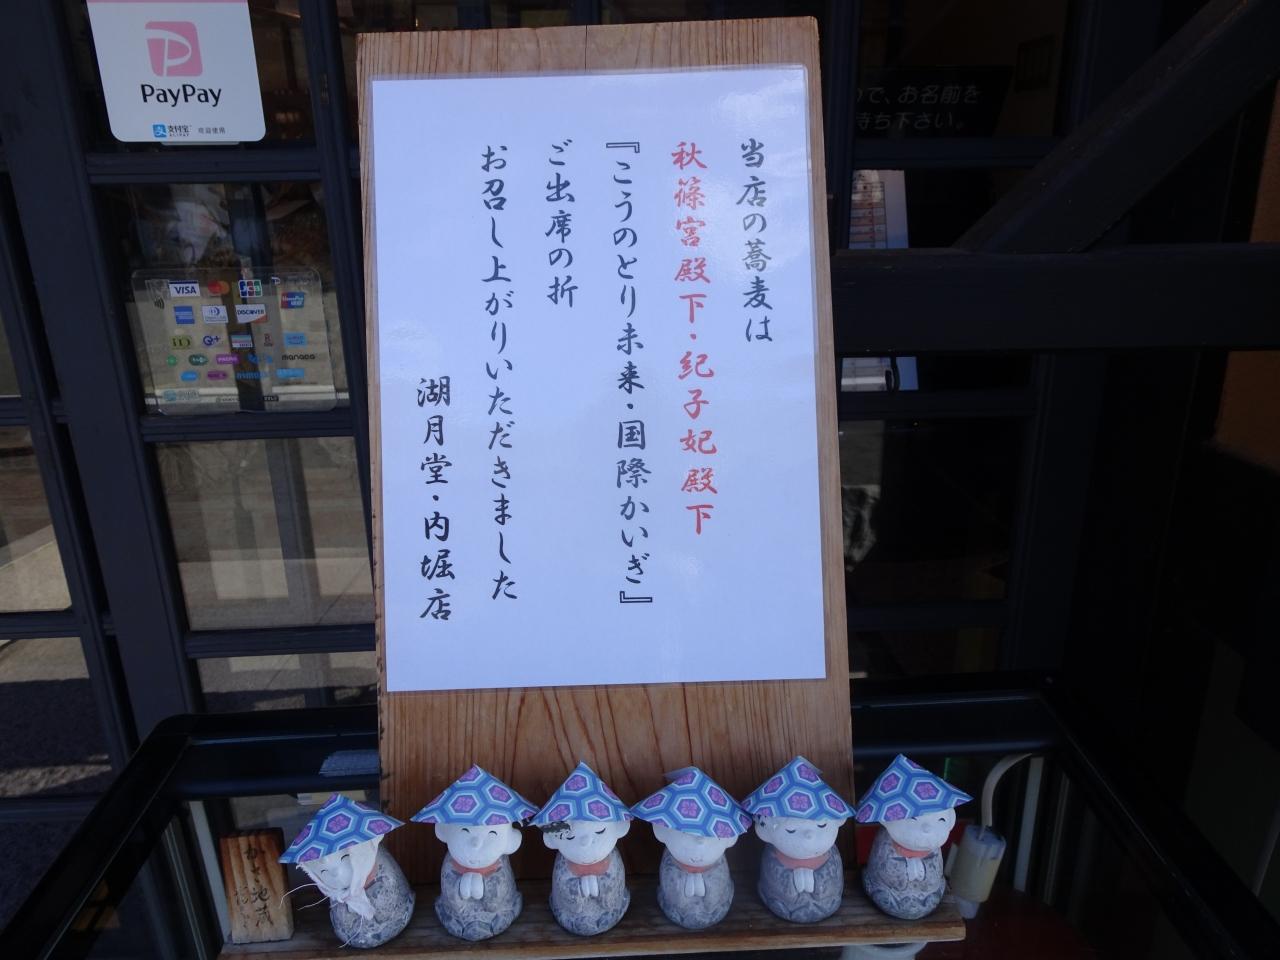 当店の蕎麦は
秋篠宮殿下・紀子妃殿下
『こうのとり未来・国際かいぎ』
ご出席の折
お召し上がりいただきました
湖月堂・内堀店
PayPay
支付宝
ALIPAY
欢迎使用
で、お名前を
待ち下さい。
VISA
JCB
DISCOVER
iD
manaca
かさ地蔵